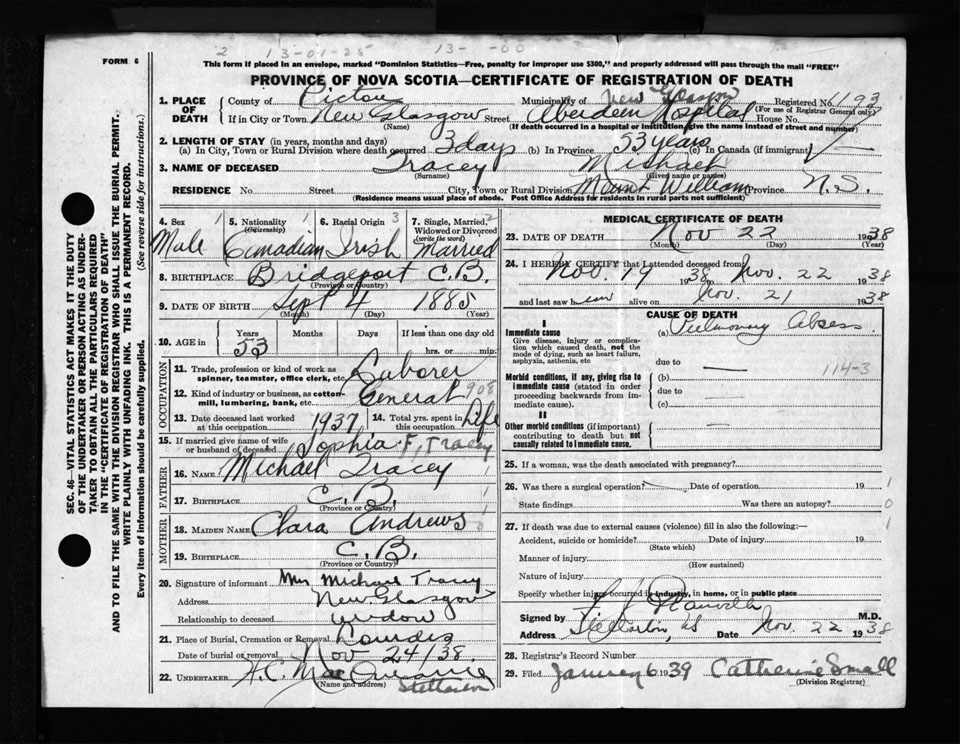 2 13-01-25 13- -00
FORM 6
This form if placed in an envelope, marked "Dominion Statistics—Free, penalty for improper use $300," and properly addressed will pass through the mail "FREE"
PROVINCE OF NOVA SCOTIA—CERTIFICATE OF REGISTRATION OF DEATH
SEC. 46—VITAL STATISTICS ACT MAKES IT THE DUTY
OF THE UNDERTAKER OR PERSON ACTING AS UNDER-
TAKER TO OBTAIN ALL THE PARTICULARS REQUIRED
IN THE "CERTIFICATE OF REGISTRATION OF DEATH"
AND TO FILE THE SAME WITH THE DIVISION REGISTRAR WHO SHALL ISSUE THE BURIAL PERMIT.
WRITE PLAINLY WITH UNFADING INK. THIS IS A PERMANENT RECORD.
Every item of information should be carefully supplied. (See reverse side for instructions.)
1. PLACE OF DEATH County of Pictou Municipality of New Glasgow Registered No. 1193
(For use of Registrar General only)
If in City or Town New Glasgow Street Aberdeen Hospital House No.
(Name) (If death occurred in a hospital or institution, give the name instead of street and number)
2. LENGTH OF STAY (in years, months and days)
(a) In City, Town or Rural Division where death occurred 3 days (b) In Province 53 years (c) In Canada (if immigrant)
3. NAME OF DECEASED Tracey Michael
(Surname) (Given name or names)
RESIDENCE No. Street City, Town or Rural Division Mount William Province N.S.
(Residence means usual place of abode. Post Office Address for residents in rural parts not sufficient)
4. Sex 1 5. Nationality 1 6. Racial Origin 3 7. Single, Married, Widowed or Divorced (write the word) 2
Male Canadian Irish Married
8. BIRTHPLACE Bridgeport C.B.
(Province or Country)
9. DATE OF BIRTH Sept 4 1885
(Month) (Day) (Year)
10. AGE in Years Months Days If less than one day old
53 hrs. or min.
OCCUPATION
11. Trade, profession or kind of work as spinner, teamster, office clerk, etc. Laborer
12. Kind of industry or business, as cotton-mill, lumbering, bank, etc. General 908
13. Date deceased last worked at this occupation 1937 14. Total yrs. spent in this occupation Life
15. If married give name of wife or husband of deceased Sophia F. Tracey
FATHER
16. NAME Michael Tracey 1
17. BIRTHPLACE C.B. 1
(Province or Country)
MOTHER
18. MAIDEN NAME Clara Andrews 0
19. BIRTHPLACE C.B.
(Province or Country)
20. Signature of informant Mrs Michael Tracey
Address New Glasgow
Relationship to deceased widow
21. Place of Burial, Cremation or Removal Lourdes
Date of burial or removal Nov 24/38
22. UNDERTAKER
(Name and address) Stellarton
MEDICAL CERTIFICATE OF DEATH
23. DATE OF DEATH Nov 22 1938
(Month) (Day) (Year)
24. I HEREBY CERTIFY that I attended deceased from
Nov. 19 1938 to Nov. 22 1938
and last saw him alive on Nov. 21 1938
CAUSE OF DEATH
I
Immediate cause (a) Pulmonary Absess
Give disease, injury or complica-
tion which caused death, not the
mode of dying, such as heart failure,
asphyxia, asthenia, etc
due to 114-3
Morbid conditions, if any, giving rise to (b)
immediate cause (stated in order
proceeding backwards from im-
mediate cause).
due to
(c)
II
Other morbid conditions (if important)
contributing to death but not
causally related to immediate cause.
25. If a woman, was the death associated with pregnancy?
26. Was there a surgical operation? Date of operation 19 1
State findings Was there an autopsy? 0
27. If death was due to external causes (violence) fill in also the following:— 1
Accident, suicide or homicide? Date of injury 19
(State which)
Manner of injury
(How sustained)
Nature of injury
Specify whether injury occurred in industry, in home, or in public place
Signed by M.D.
Address Date Nov. 22 1938
28. Registrar's Record Number
29. Filed January 6 1939 Catherine Small
(Division Registrar)